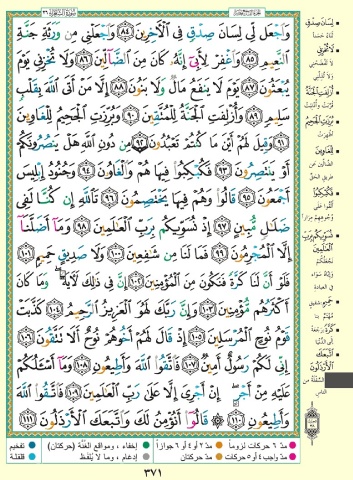 سورة الشعراء ٢٦
وَٱجْعَل لِّى لِسَانَ صِدْقٍ فِى ٱلْأَخِرِينَ ٨٤ وَٱجْعَلْنِى مِن وَرَثَةِ جَنَّةِ
ٱلنَّعِيمِ ٨٥ وَٱغْفِرْ لِأَبِىٓ إِنَّهُۥ كَانَ مِنَ ٱلضَّآلِّينَ ٨٦ وَلَا تُخْزِنِى يَوْمَ
يُبْعَثُونَ ٨٧ يَوْمَ لَا يَنفَعُ مَالٌ وَلَا بَنُونَ ٨٨ إِلَّا مَنْ أَتَى ٱللَّهَ بِقَلْبٍ
سَلِيمٍ ٨٩ وَأُزْلِفَتِ ٱلْجَنَّةُ لِلْمُتَّقِينَ ٩٠ وَبُرِّزَتِ ٱلْجَحِيمُ لِلْغَاوِينَ
٩١ وَقِيلَ لَهُمْ أَيْنَ مَا كُنتُمْ تَعْبُدُونَ ٩٢ مِن دُونِ ٱللَّهِ هَلْ يَنصُرُونَكُمْ
أَوْ يَنتَصِرُونَ ٩٣ فَكُبْكِبُوا۟ فِيهَا هُمْ وَٱلْغَاوُۥنَ ٩٤ وَجُنُودُ إِبْلِيسَ
أَجْمَعُونَ ٩٥ قَالُوا۟ وَهُمْ فِيهَا يَخْتَصِمُونَ ٩٦ تَٱللَّهِ إِن كُنَّا لَفِى
ضَلَـٰلٍ مُّبِينٍ ٩٧ إِذْ نُسَوِّيكُم بِرَبِّ ٱلْعَـٰلَمِينَ ٩٨ وَمَآ أَضَلَّنَآ
إِلَّا ٱلْمُجْرِمُونَ ٩٩ فَمَا لَنَا مِن شَـٰفِعِينَ ١٠٠ وَلَا صَدِيقٍ حَمِيمٍ ١٠١
فَلَوْ أَنَّ لَنَا كَرَّةً فَنَكُونَ مِنَ ٱلْمُؤْمِنِينَ ١٠٢ إِنَّ فِى ذَٰلِكَ لَـَٔايَةً وَمَا كَانَ
أَكْثَرُهُم مُّؤْمِنِينَ ١٠٣ وَإِنَّ رَبَّكَ لَهُوَ ٱلْعَزِيزُ ٱلرَّحِيمُ ١٠٤ كَذَّبَتْ
قَوْمُ نُوحٍ ٱلْمُرْسَلِينَ ١٠٥ إِذْ قَالَ لَهُمْ أَخُوهُمْ نُوحٌ أَلَا تَتَّقُونَ ١٠٦
إِنِّى لَكُمْ رَسُولٌ أَمِينٌ ١٠٧ فَٱتَّقُوا۟ ٱللَّهَ وَأَطِيعُونِ ١٠٨ وَمَآ أَسْـَٔلُكُمْ
عَلَيْهِ مِنْ أَجْرٍ إِنْ أَجْرِىَ إِلَّا عَلَىٰ رَبِّ ٱلْعَـٰلَمِينَ ١٠٩ فَٱتَّقُوا۟ ٱللَّهَ
وَأَطِيعُونِ ١١٠ قَالُوٓا۟ أَنُؤْمِنُ لَكَ وَٱتَّبَعَكَ ٱلْأَرْذَلُونَ ١١١
لِسَانَ صِدْقٍ
ثناءً حسناً
لَا تُخْزِنِى
أُزْلِفَتِ ٱلْجَنَّةُ
بُرِّزَتِ ٱلْجَحِيمُ
لِلْغَاوِينَ
الضالين عن
طريق الحق
فَكُبْكِبُوا۟
نُسَوِّيكُم بِرَبِّ
ٱلْعَـٰلَمِينَ
في العبادة
حَمِيمٍ
كَرَّةً
ٱتَّبَعَكَ
ٱلْأَرْذَلُونَ
السفلة من
الناس
مدّ ٦ حركات لزوماً مدّ ٢ أو ٤ أو ٦ جوازاً إخفاء، ومواقع الغنّة (حركتان) تفخيم
مدّ واجب ٤ أو ٥ حركات مدّ حركتان إدغام، وما لا يُلفظ قلقلة
٣٧١